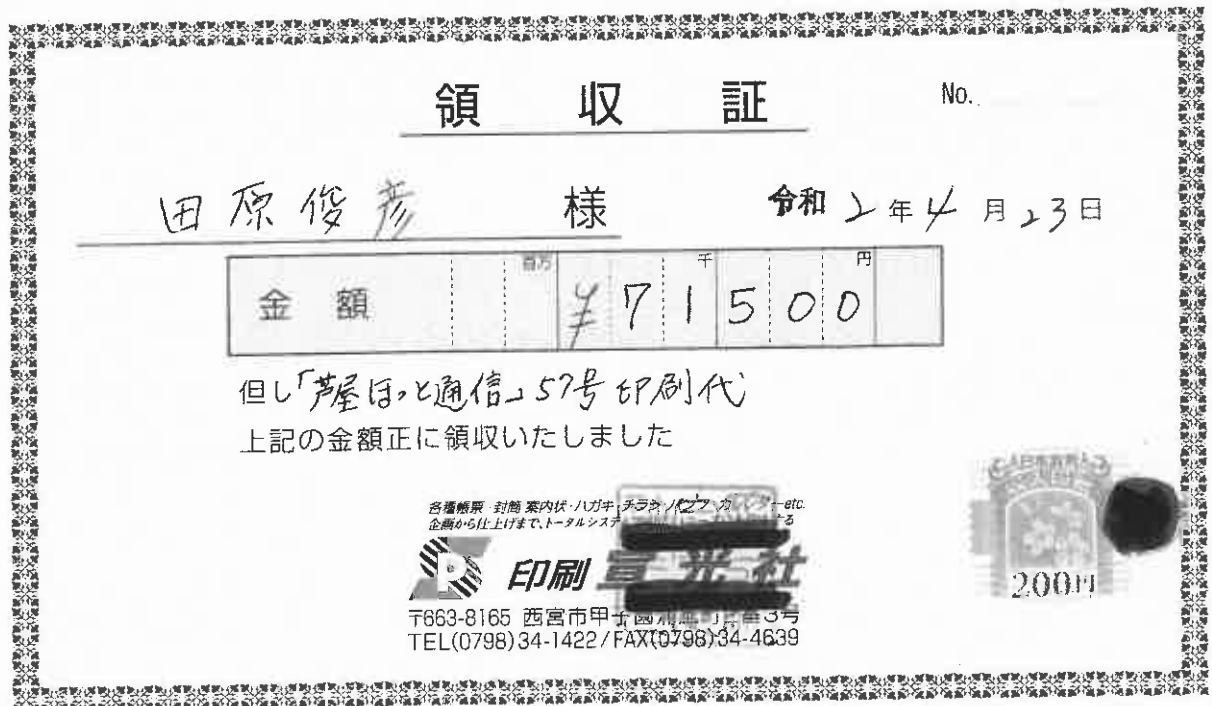 領 収 証
No.
田原俊彦 様
令和 2年4月23日
金 額 百万 千 円
¥71500
但し「芦屋ほっと通信」57号 印刷代
上記の金額正に領収いたしました
各種帳票・封筒 案内状・ハガキ・チラシ
企画から仕上げまで、トータルシステ
印刷 宣光社
〒663-8165 西宮市甲子園浦風町 番3号
TEL(0798)34-1422/FAX(0798)34-4639
200円